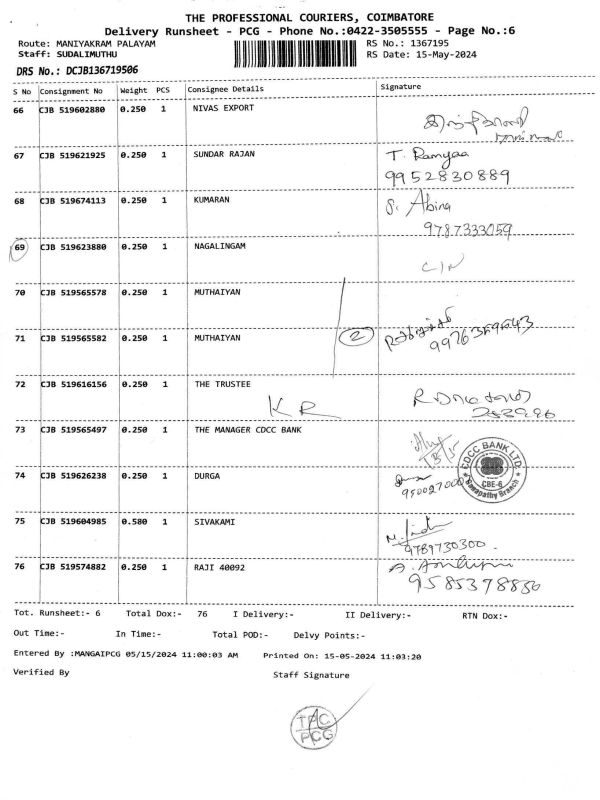 THE PROFESSIONAL COURIERS, COIMBATORE
Delivery Runsheet - PCG - Phone No.:0422-3505555 - Page No.:6
Route: MANIYAKRAM PALAYAM
RS No.: 1367195
Staff: SUDALIMUTHU
RS Date: 15-May-2024
DRS No.: DCJB136719506
S No Consignment No Weight PCS Consignee Details Signature
66 CJB 519602880 0.250 1 NIVAS EXPORT
67 CJB 519621925 0.250 1 SUNDAR RAJAN T. Ramyaa
9952830889
68 CJB 519674113 0.250 1 KUMARAN S. Abina
9787333059
69 CJB 519623880 0.250 1 NAGALINGAM
70 CJB 519565578 0.250 1 MUTHAIYAN
71 CJB 519565582 0.250 1 MUTHAIYAN 2
72 CJB 519616156 0.250 1 THE TRUSTEE
KR
73 CJB 519565497 0.250 1 THE MANAGER CDCC BANK
CDCC BANK LTD.
CBE-6
Ganapathy Branch
74 CJB 519626238 0.250 1 DURGA
75 CJB 519604985 0.580 1 SIVAKAMI
9789730300
76 CJB 519574882 0.250 1 RAJI 40092
9585378856
Tot. Runsheet:- 6 Total Dox:- 76 I Delivery:- II Delivery:- RTN Dox:-
Out Time:- In Time:- Total POD:- Delvy Points:-
Entered By :MANGAIPCG 05/15/2024 11:00:03 AM Printed On: 15-05-2024 11:03:20
Verified By Staff Signature
TPC
PCG